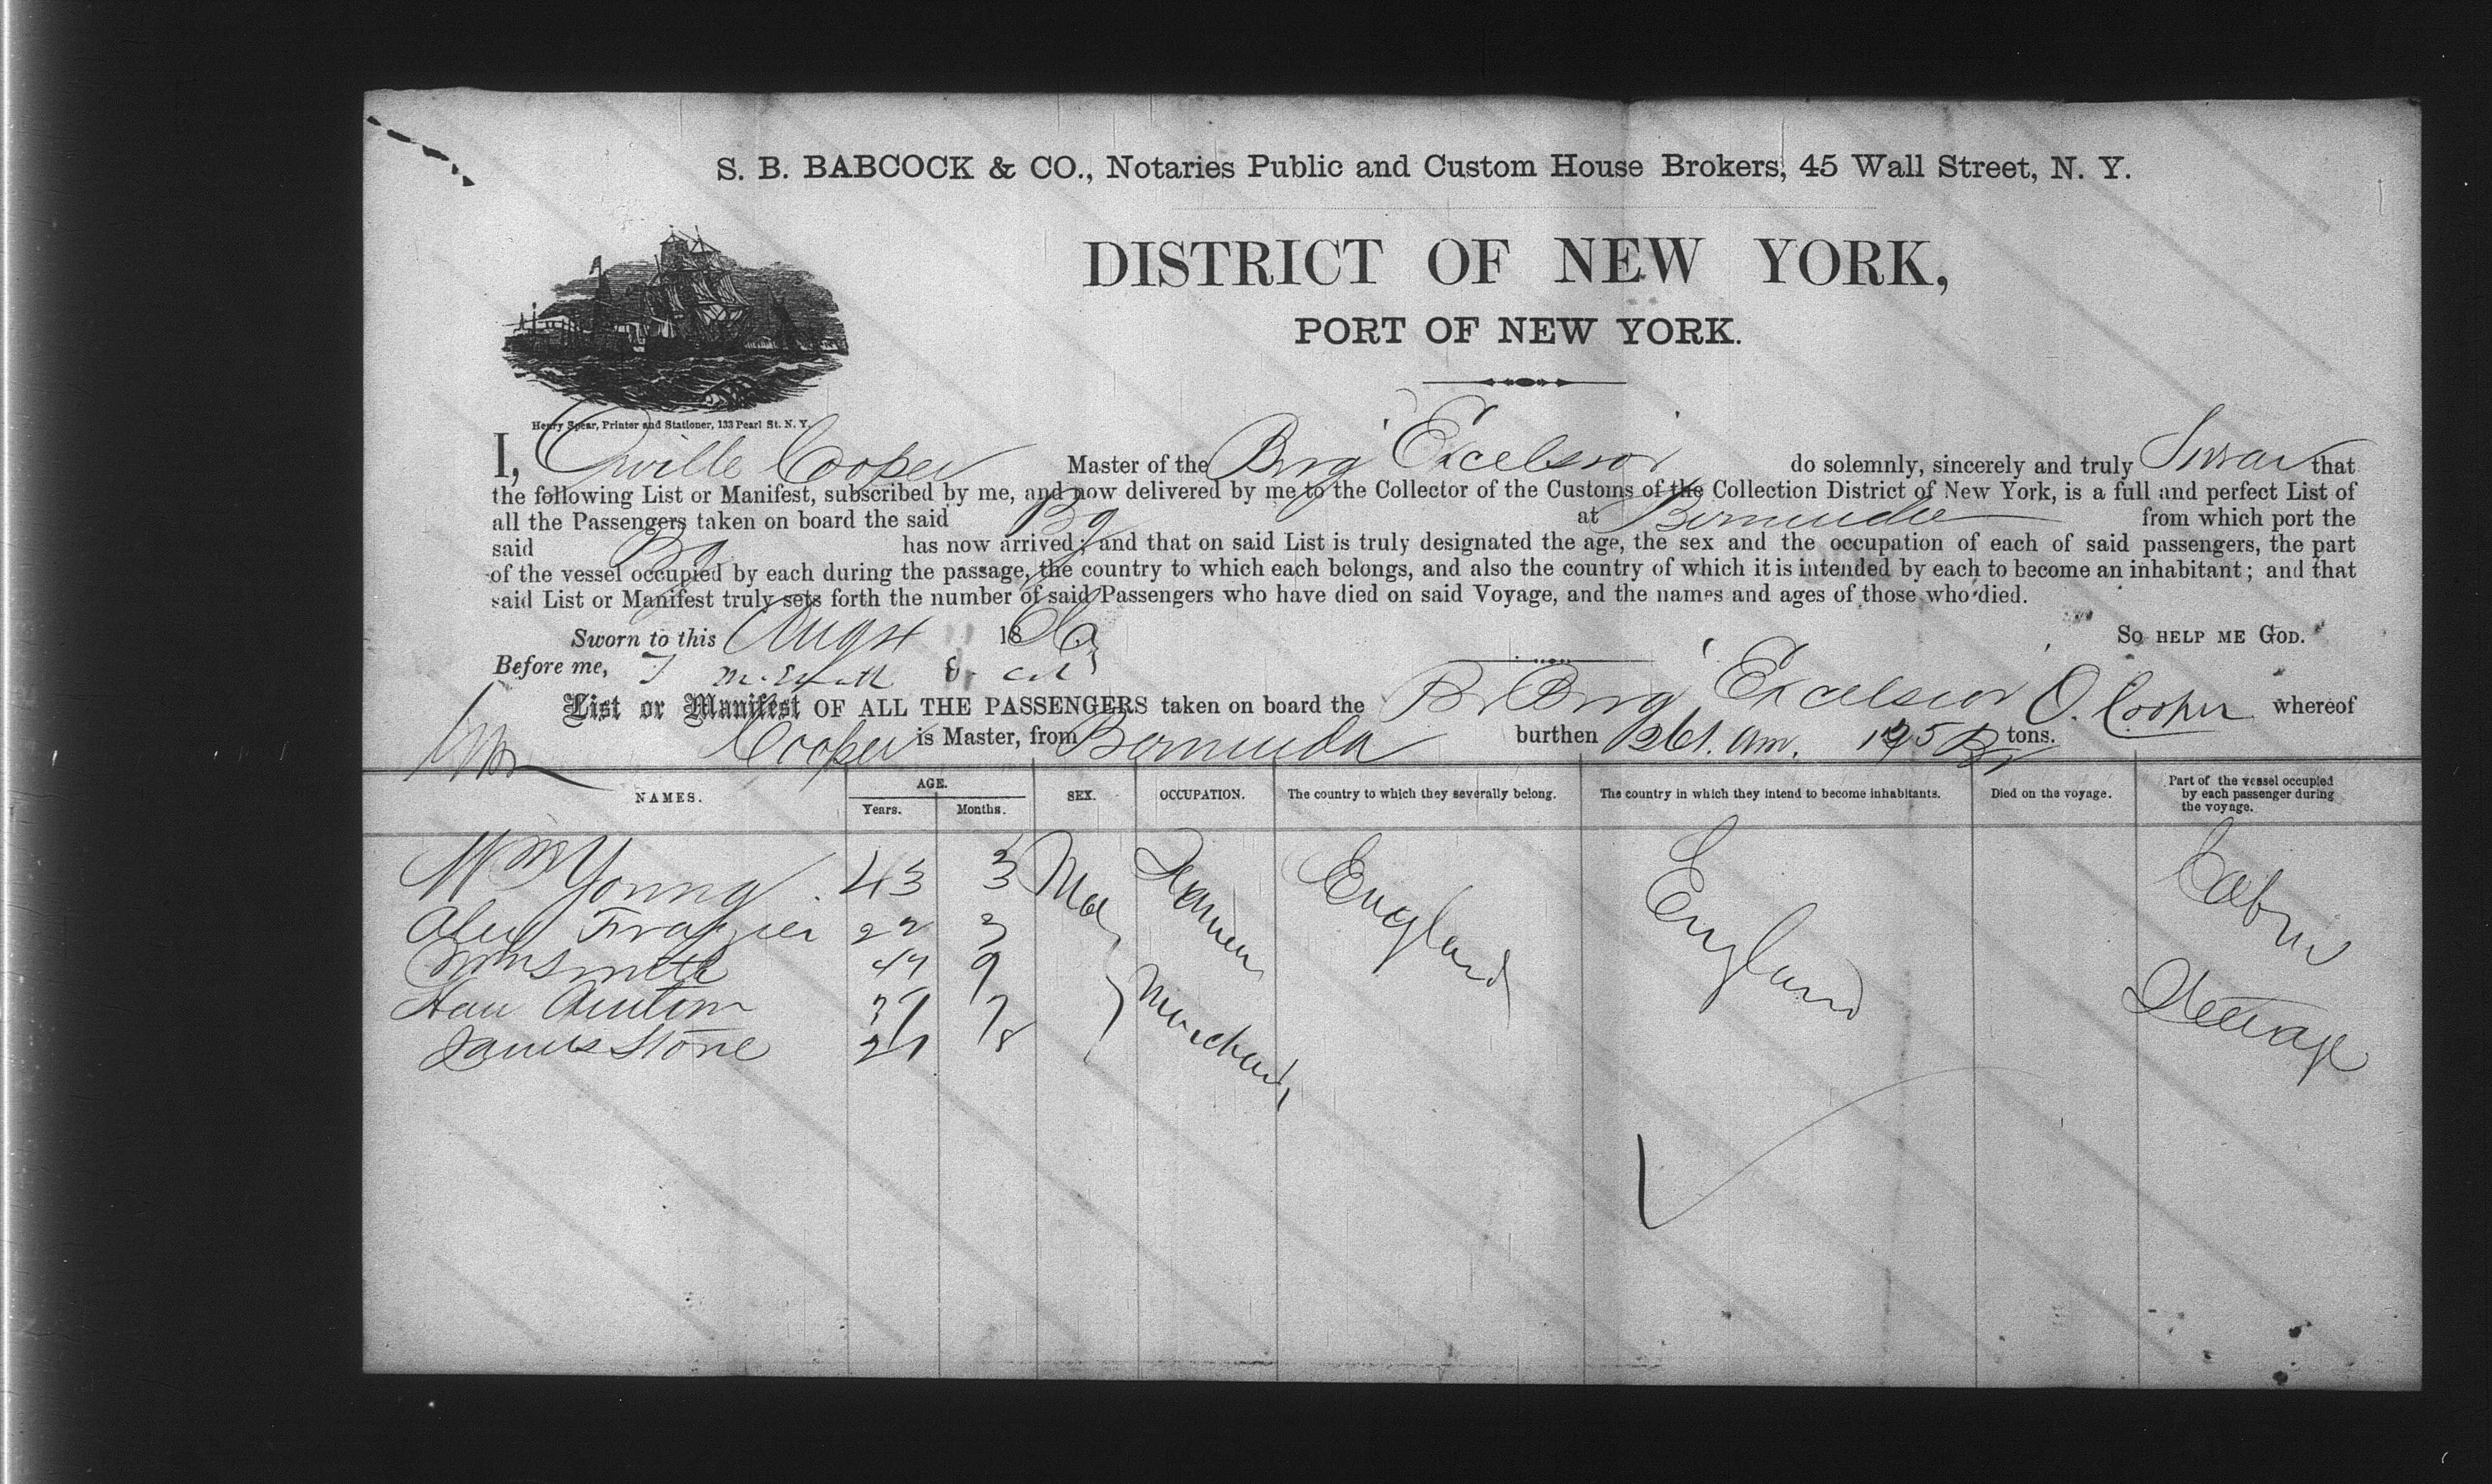 S. B. BABCOCK & CO., Notaries Public and Custom House Brokers, 45 Wall Street, N. Y.
DISTRICT OF NEW YORK,
PORT OF NEW YORK.
Henry Spear, Printer and Stationer, 133 Pearl St. N. Y.
I, Orville Cooper Master of the Brig "Excelsior" do solemnly, sincerely and truly Swear that
the following List or Manifest, subscribed by me, and now delivered by me to the Collector of the Customs of the Collection District of New York, is a full and perfect List of
all the Passengers taken on board the said Bg at Bermuda from which port the
said Bg has now arrived; and that on said List is truly designated the age, the sex and the occupation of each of said passengers, the part
of the vessel occupied by each during the passage, the country to which each belongs, and also the country of which it is intended by each to become an inhabitant; and that
said List or Manifest truly sets forth the number of said Passengers who have died on said Voyage, and the names and ages of those who died.
Sworn to this Augst 186 So HELP ME GOD.
Before me,
List or Manifest OF ALL THE PASSENGERS taken on board the Br Brig "Excelsior" O. Cooper whereof
Cooper is Master, from Bermuda burthen 261. Am. 195 Br tons.
NAMES. AGE. Years. Months. SEX. OCCUPATION. The country to which they severally belong. The country in which they intend to become inhabitants. Died on the voyage. Part of the vessel occupied by each passenger during the voyage.
Wm Young 43 3 Mal England England Cabin
Alex Frazier 22 3
Wm Smith 9
7 Merchants Steerage
James Stone 21 8